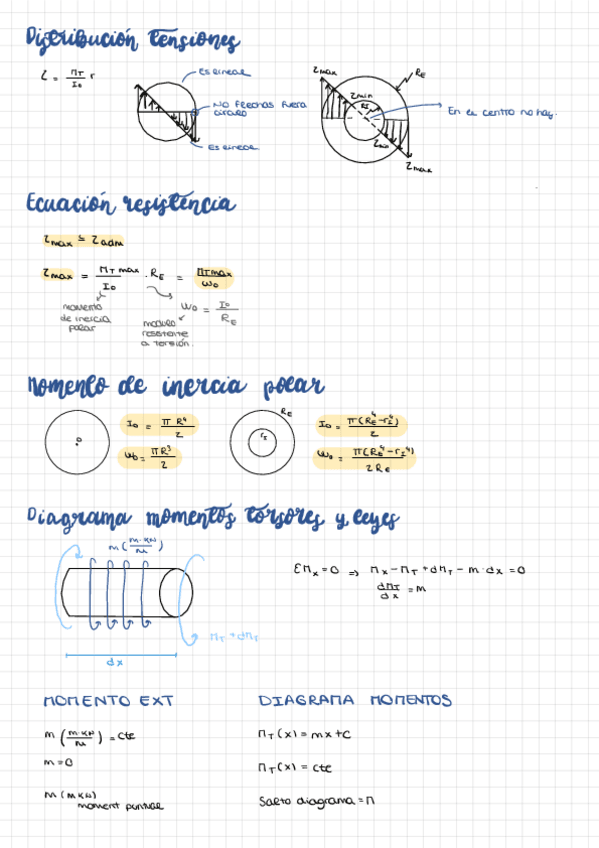 Distribución tensiones
τ = M_T / I_0 r
Es lineal
No flechas fuera
círculo
Es lineal
τmax
τmin
R_E
r_I
En el centro no hay.
τmin
τmax
Ecuación resistencia
τmax ≤ τadm
τmax = M_T max / I_0 · R_E = M_T max / W_0
momento
de inercia
polar
W_0 = I_0 / R_E
modulo
resistente
a torsión.
Momento de inercia polar
I_0 = π R^4 / 2
W_0 = π R^3 / 2
R_E
r_I
I_0 = π (R_E^4 - r_I^4) / 2
W_0 = π (R_E^4 - r_I^4) / 2 R_E
Diagrama momentos torsores y leyes
m (m·KN / m)
ΣM_x = 0 ⇒ M_x - M_T + dM_T - m·dx = 0
dM_T / dx = m
M_T + dM_T
dx
MOMENTO EXT
DIAGRAMA MOMENTOS
m (m·KN / m) = cte
M_T (x) = mx + C
m = 0
M_T (x) = cte
M (m KN)
moment puntual
Salto diagrama = M